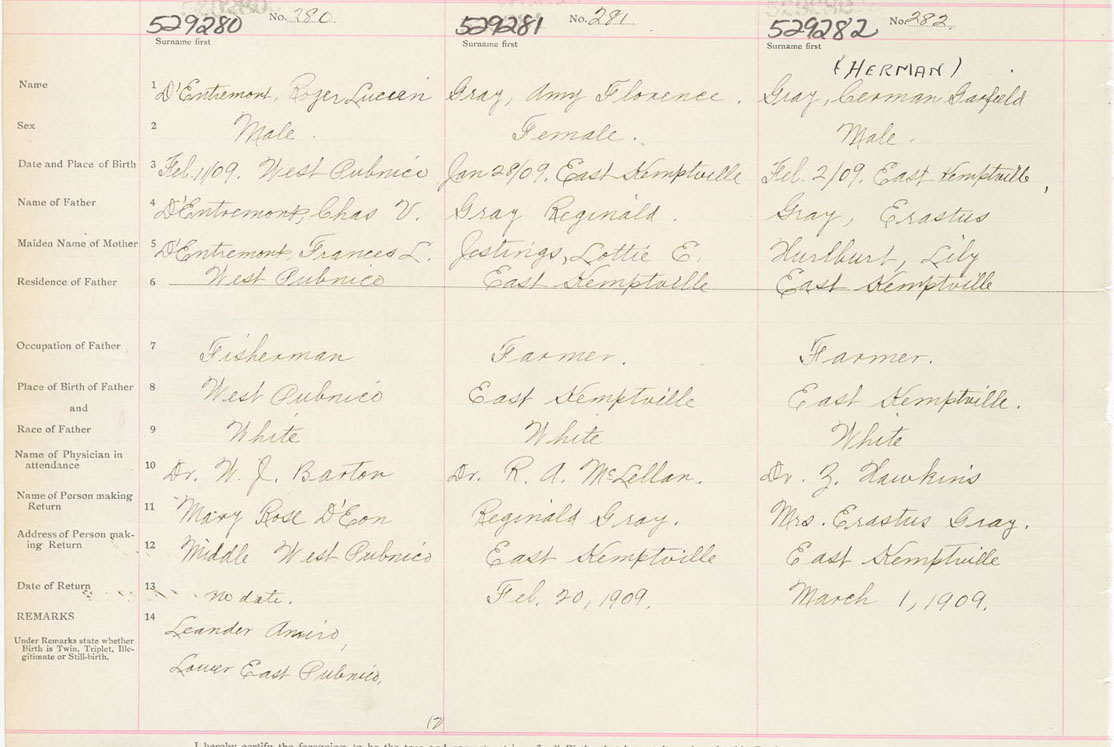 529280 No. 280 529281 No. 281 529282 No. 282
Surname first Surname first Surname first
(HERMAN)
Name 1 D'Entremont, Roger Lucien Gray, Amy Florence. Gray, German Garfield
Sex 2 Male. Female. Male.
Date and Place of Birth 3 Feb. 1/09. West Pubnico Jan 28/09. East Kemptville Feb. 2/09. East Kemptville,
Name of Father 4 D'Entremont, Chas V. Gray Reginald. Gray, Erastus
Maiden Name of Mother 5 D'Entremont, Frances L. Jestings, Lottie E. Hurlburt, Lily
Residence of Father 6 West Pubnico East Kemptville East Kemptville
Occupation of Father 7 Fisherman Farmer. Farmer.
Place of Birth of Father 8 West Pubnico East Kemptville East Kemptville.
and
Race of Father 9 White White White
Name of Physician in
attendance 10 Dr. W. J. Barton Dr. R. A. McLellan. Dr. Z. Hawkins
Name of Person making
Return 11 Mary Rose D'Eon Reginald Gray. Mrs. Erastus Gray.
Address of Person mak-
ing Return 12 Middle West Pubnico East Kemptville East Kemptville
Date of Return 13 no date. Feb. 20, 1909. March 1, 1909.
REMARKS 14 Leander Amiro,
Under Remarks state whether
Birth is Twin, Triplet, Ille-
gitimate or Still-birth.
Lower East Pubnico.